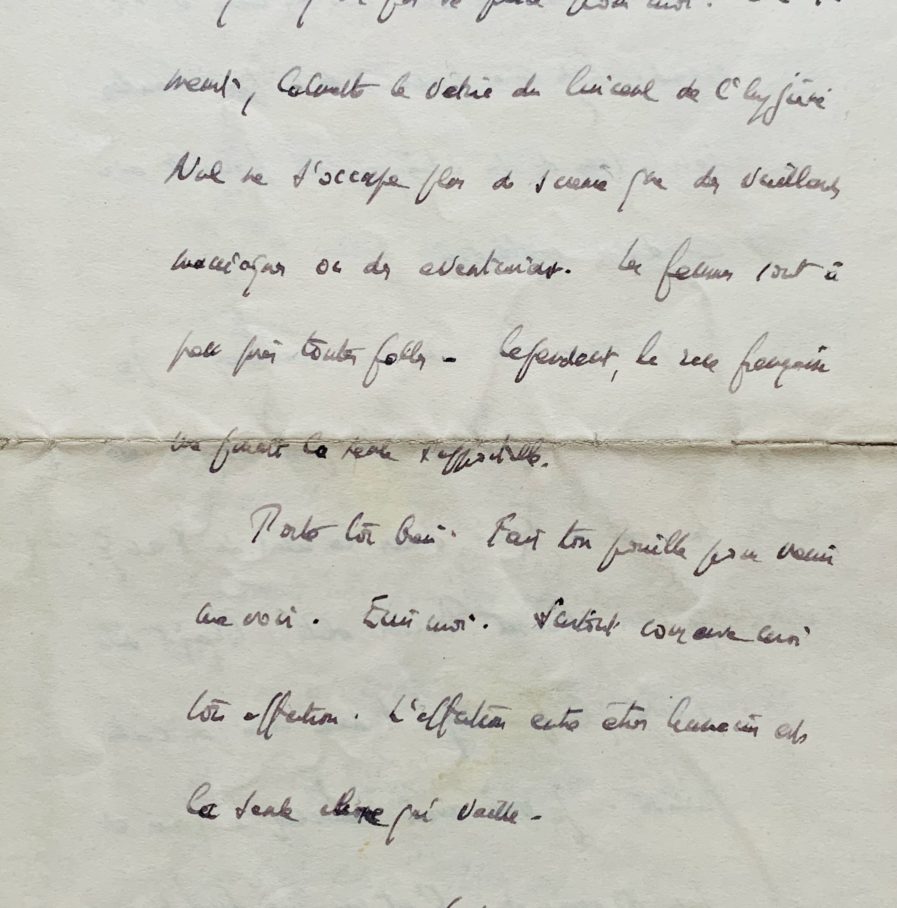 pour moi.
ment, la vertu du de l'hygiène
Nul ne s'occupe plus de science que des vieillards
maniaques ou des aventuriers. Les femmes sont à
peu près toutes folles – Cependant, la race française
me paraît la seule supportable.
Porte toi bien. Fais ton possible pour venir
me voir. Ecris moi. Surtout conserve moi
ton affection. L'affection entre êtres humains est
la seule chose qui vaille –